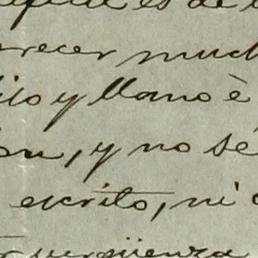 es de
arecer much
llo y llano è
on, y no sé
escrito, ni
vergüenza